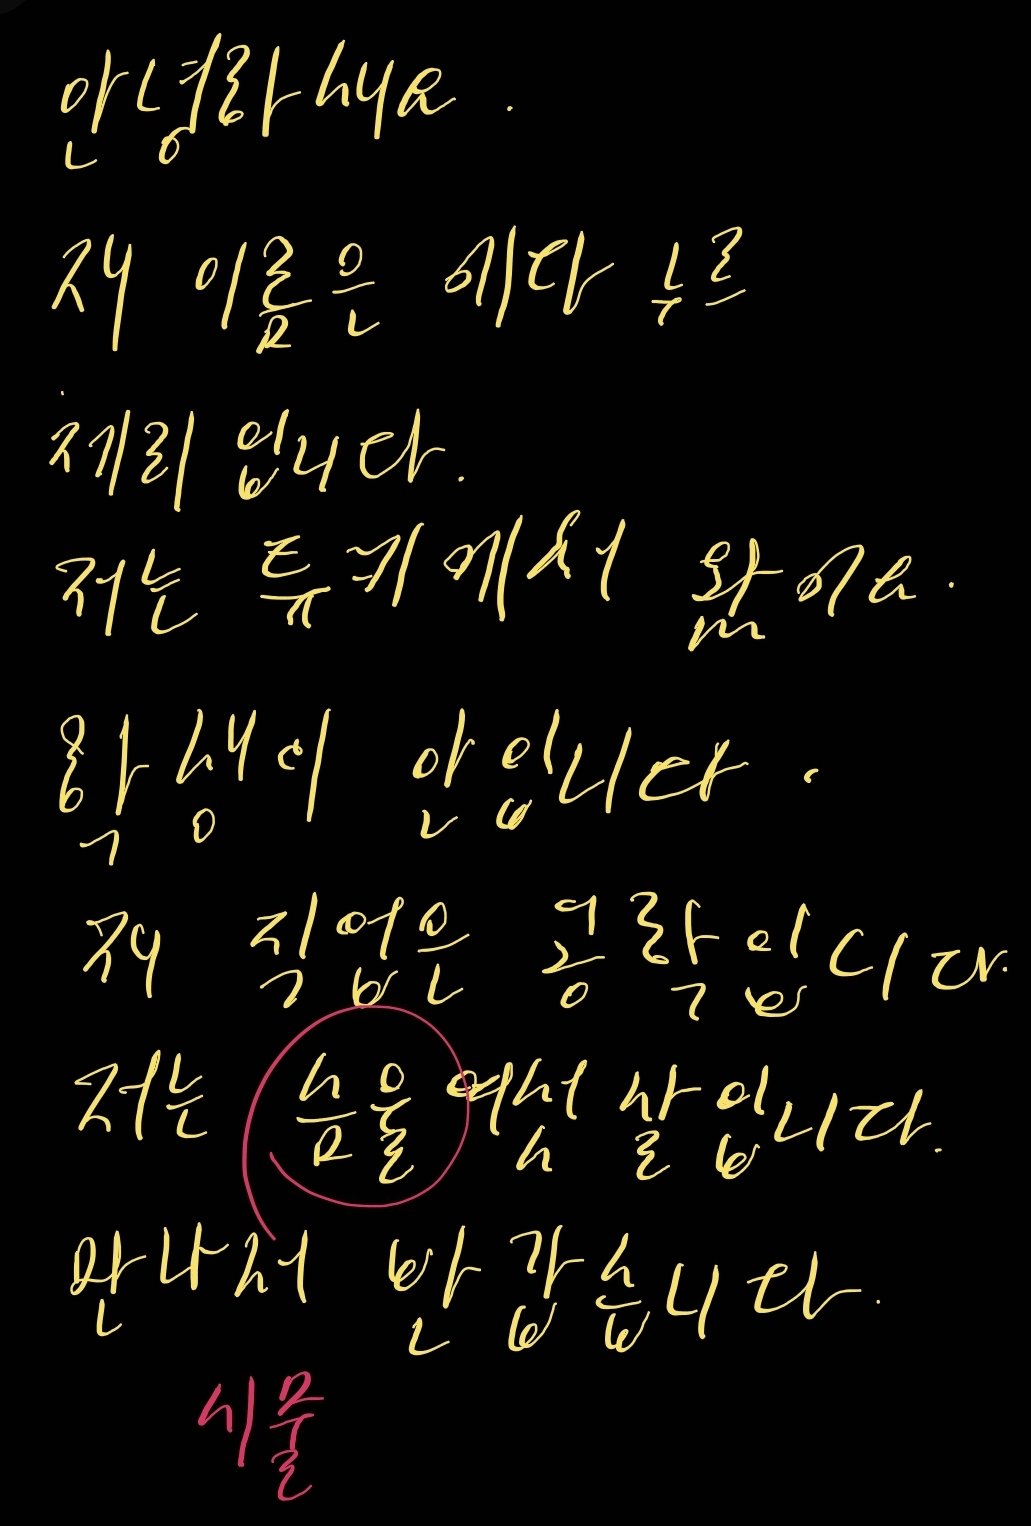 안녕하새요.
재 이름은 에다 누르
제리 입니다.
저는 튜키에서 왔어요.
학생이 안입니다.
재 직업은 공학입니다.
저는 슴울 여섯 살입니다.
만나서 반갑습니다.
시물